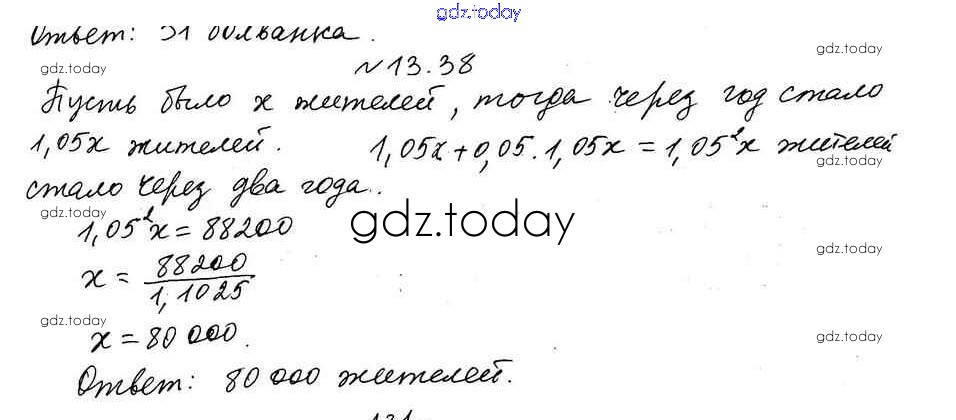 gdz.today
Ответ: 31 болванка.
gdz.today
gdz.today
№13.38
Пусть было x жителей, тогда через год стало
1,05x жителей. 1,05x+0,05.1,05x=1,05²x жителей
gdz.today
стало через два года.
gdz.today
1,05²x=88200
gdz.today
gdz.today
x = 88200 / 1,1025
gdz.today
x = 80 000.
gdz.today
Ответ: 80 000 жителей.